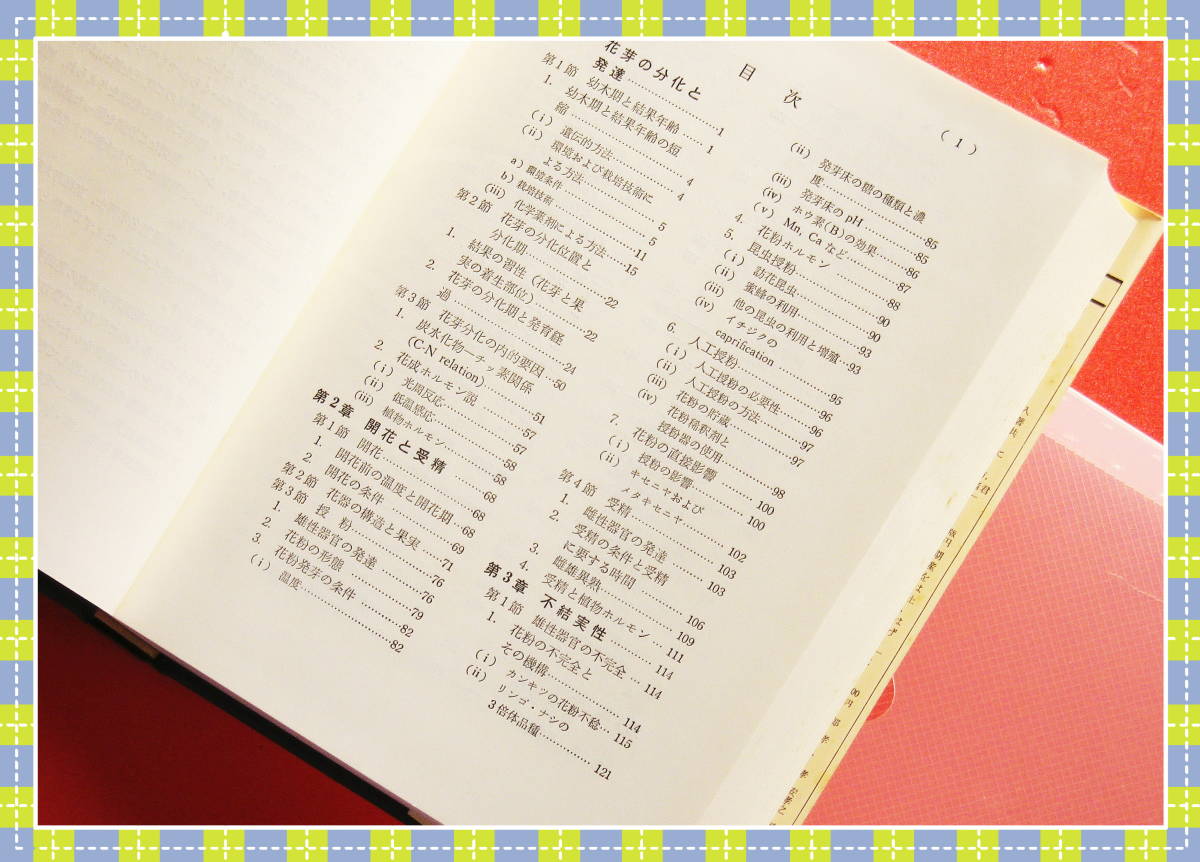 目次
(1)
花芽の分化と
発達……………1
第1節 幼木期と結果年齢……1
1. 幼木期と結果年齢の短
縮……………4
(i) 遺伝的方法……………4
(ii) 環境および栽培技術に
よる方法……………5
a) 環境条件……………5
b) 栽培技術……………11
(iii) 化学薬剤による方法……15
第2節 花芽の分化位置と
分化期……………22
1. 結果の習性(花芽と果
実の着生部位)……………22
2. 花芽の分化期と発育経
過……………24
第3節 花芽分化の内的要因…50
1. 炭水化物—チッ素関係
(C-N relation)……………51
2. 花成ホルモン説……………57
(i) 光周反応……………57
(ii) 低温感応……………58
(iii) 植物ホルモン……………58
第2章 開花と受精……………68
第1節 開花……………68
1. 開花前の温度と開花期…68
2. 開花の条件……………69
第2節 花器の構造と果実……71
第3節 授粉……………76
1. 雄性器官の発達……………76
2. 花粉の形態……………79
3. 花粉発芽の条件……………82
(i) 温度……………82
(ii) 発芽床の糖の種類と濃
度……………85
(iii) 発芽床のpH……………85
(iv) ホウ素(B)の効果……86
(v) Mn, Caなど……………87
4. 花粉ホルモン……………88
5. 昆虫授粉……………90
(i) 訪花昆虫……………90
(ii) 蜜蜂の利用……………93
(iii) 他の昆虫の利用と増殖…93
(iv) イチジクの
caprification……………95
6. 人工授粉……………96
(i) 人工授粉の必要性……96
(ii) 人工授粉の方法……97
(iii) 花粉の貯蔵……………97
(iv) 花粉稀釈剤と
授粉器の使用……………98
7. 花粉の直接影響……………100
(i) 授粉の影響……………100
(ii) キセニヤおよび
メタキセニヤ……………102
第4節 受精……………103
1. 雌性器官の発達……………103
2. 受精の条件と受精
に要する時間……………106
3. 雌雄異熟……………109
4. 受精と植物ホルモン……111
第3章 不結実性……………114
第1節 雄性器官の不完全…114
1. 花粉の不完全と
その機構……………114
(i) カンキツの花粉不稔…115
(ii) リンゴ・ナシの
3倍体品種……………121